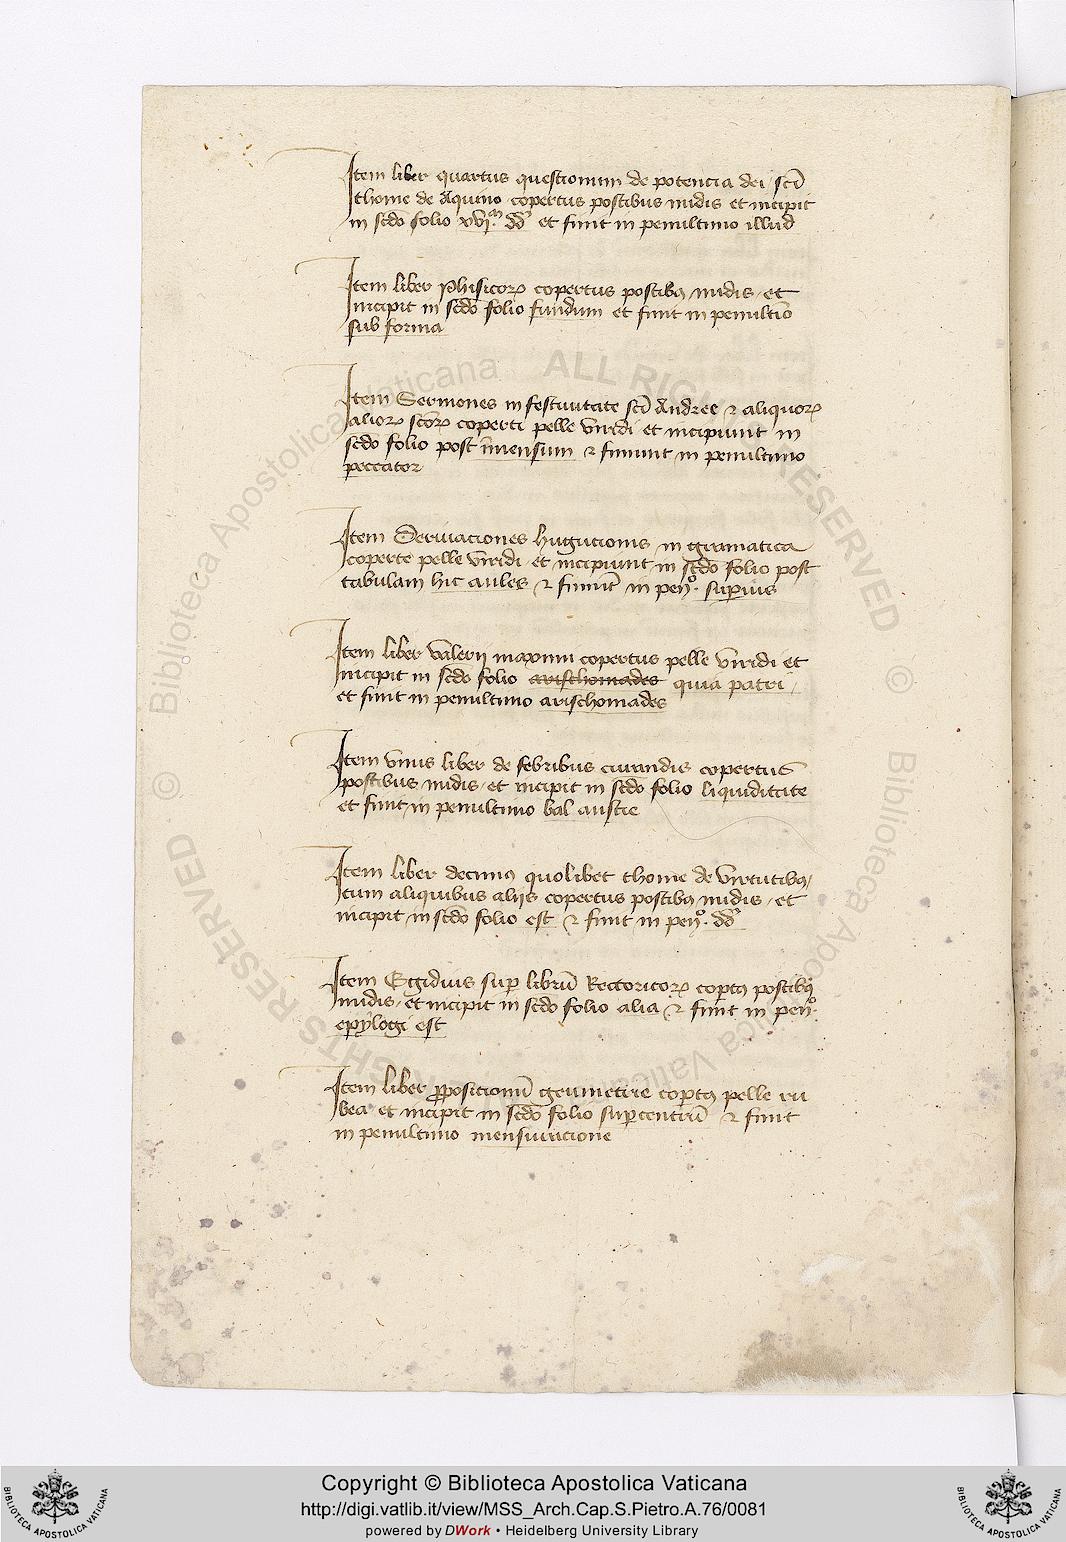 Item liber quartus questionum de potencia dei sci
thome de Aquino copertus postibus nudis et incipit
in scdo folio xvj. dd et finit in penultimo illud
Item liber Phisicorꝝ copertus postibꝯ nudis et
incipit in scdo folio fundum et finit in penultio
sub forma
Item Sermones in festiuitate sci Andree ⁊ aliquorꝝ
aliorꝝ scorꝝ coperti pelle viridi et incipiunt in
scdo folio post imensum ⁊ finiunt in penultimo
peccator
Item Deriuaciones hugucionis in gramatica
coperte pelle viridi et incipiunt in scdo folio post
tabulam hic aules ⁊ finiut in peno. supius
Item liber valerij maximi copertus pelle viridi et
incipit in scdo folio arischomades quia patri
et finit in penultimo arischomades
Item vnus liber de febribus curandis copertus
postibus nudis et incipit in scdo folio liquiditate
et finit in penultimo bal austie
Item liber decimꝯ quolibet thome de virtutibꝯ
cum aliquibus alijs copertus postibꝯ nudis et
incipit in scdo folio est ⁊ finit in peno. dd
Item Egidius sup libru Rectoricorꝝ coptꝯ postibꝯ
nudis et incipit in scdo folio alia ⁊ finit in peno.
epylogi est
Item liber ꝓpositionu geumetrie coptꝯ pelle ru
bea et incipit in scdo folio supcentru ⁊ finit
in penultimo mensuracione
© Biblioteca Apostolica Vaticana ALL RIGHTS RESERVED
© Biblioteca Apostolica Vaticana ALL RIGHTS RESERVED
BIBLIOTECA APOSTOLICA VATICANA
Copyright © Biblioteca Apostolica Vaticana
http://digi.vatlib.it/view/MSS_Arch.Cap.S.Pietro.A.76/0081
powered by DWork • Heidelberg University Library
BIBLIOTECA APOSTOLICA VATICANA